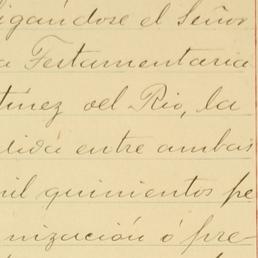 igándose el Señor
a Testamentaria
tínez del Rio, la
dida entre ambas
mil quinientos pe
nización ó pre-